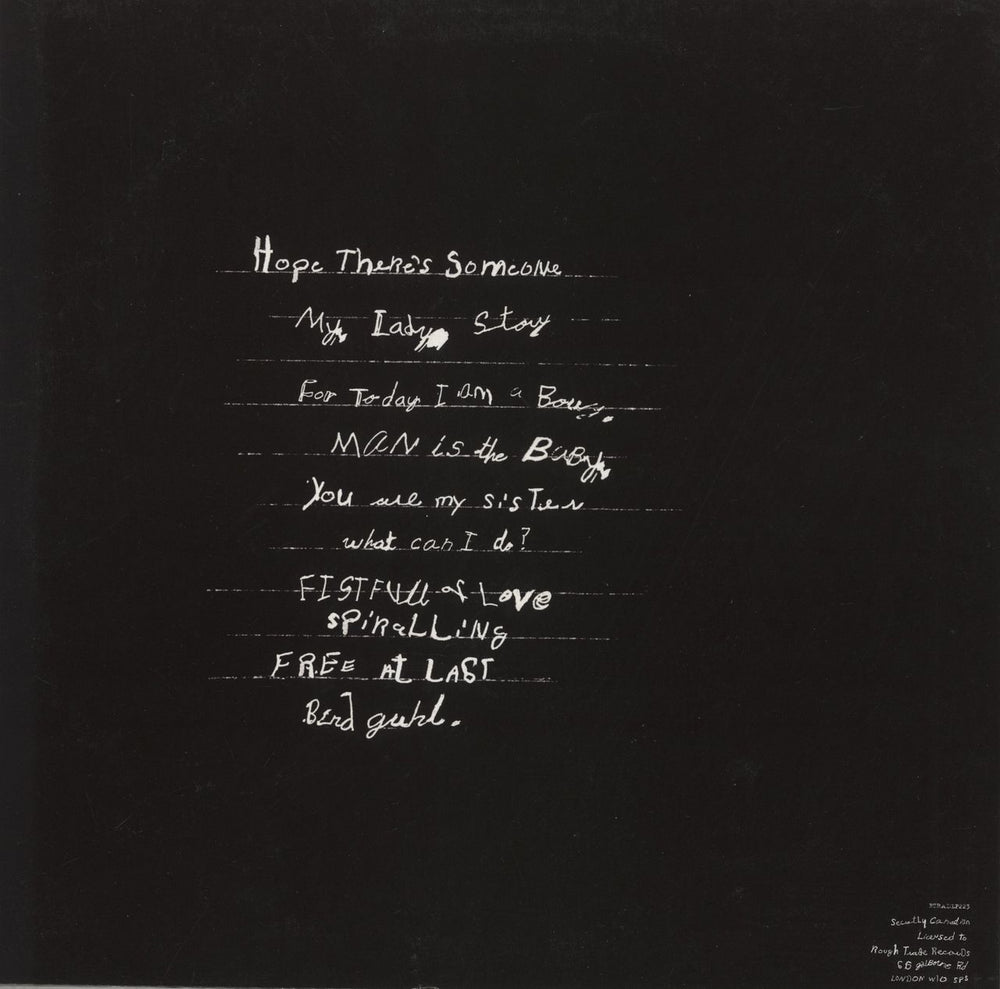 Hope There's Someone
My Lady Story
For Today I am a Boy.
MAN is the BaBy
You are my sisTer
what can I do?
FISTFUll of Love
sPiRaLLiNg
FREE AT LAST
Bird guhl.
RTRADLP223
Secretly Canadian
Licensed to
Rough Trade Records
66 golborne Rd
LONDON W10 5PS